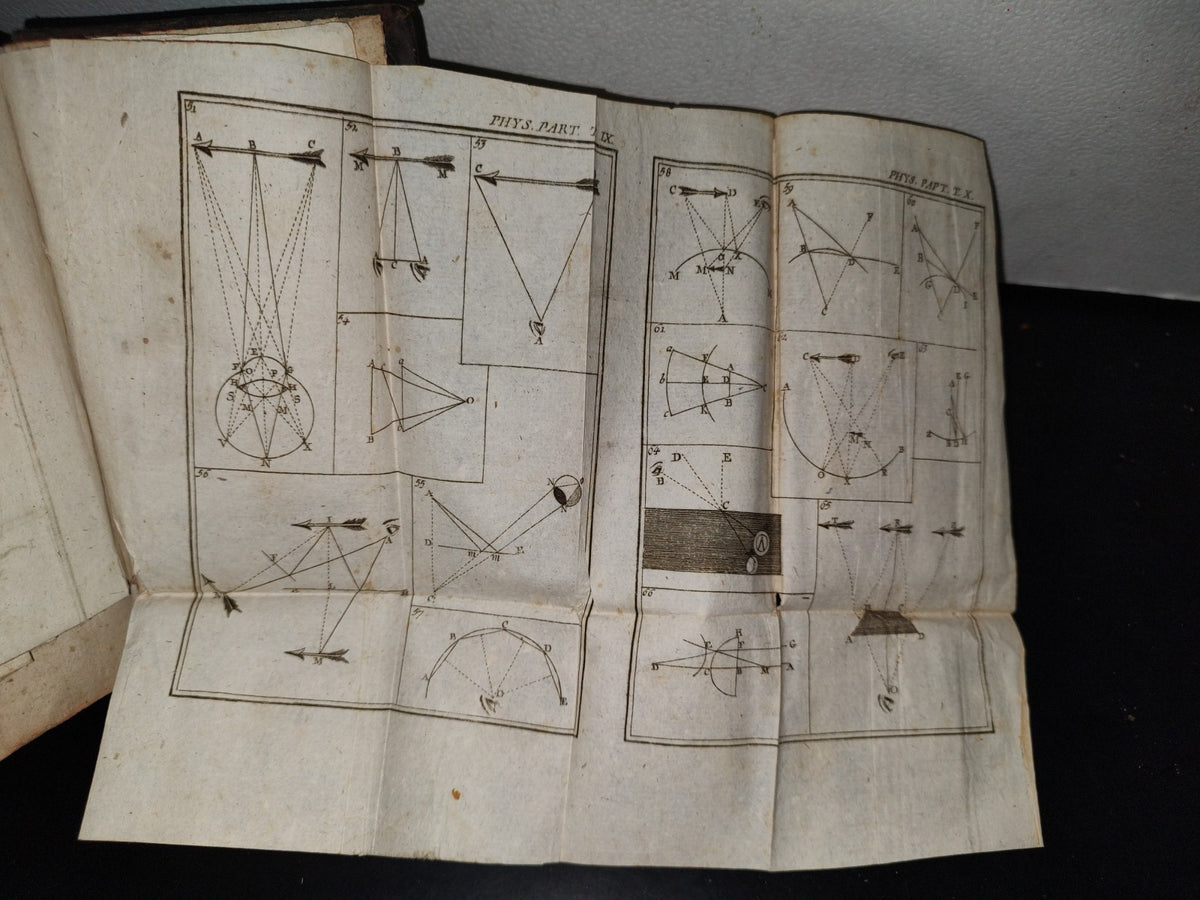 PHYS. PART. T. IX.
51
A B C
E
F O P G
H H
S S
M M
V X
N
52
M B M
C A
53
C
A
54
A a
O
B
55
A
N
D m m E
C
56
T
A
F
M
57
B C D
A O E
PHYS. PART. T. X.
58
C D
E
G X
M M N
A
59
A F
B D E
C
60
A F
B
G D
I E
61
a F A
b E D
c K B
62
C D E
A
M N
B
O X R
63
E G
A
C
64
D E
B
C
65
A D
O
66
H
E F G
D C B M A